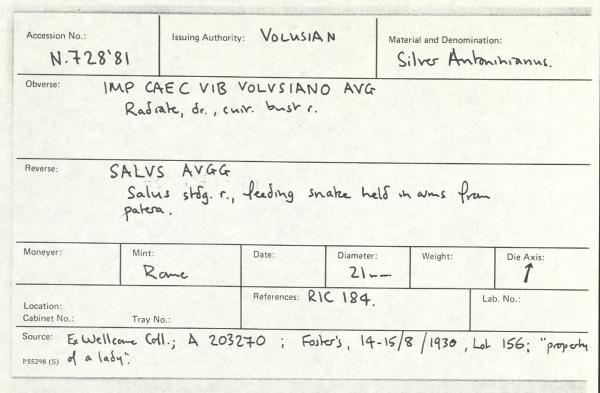 Accession No.: N.728'81
Issuing Authority: VOLUSIAN
Material and Denomination: Silver Antoninianus.
Obverse: IMP CAEC VIB VOLVSIANO AVG
Radiate, dr., cuir. bust r.
Reverse: SALVS AVGG
Salus stdg. r., feeding snake held in arms from
patera.
Moneyer:
Mint: Rome
Date:
Diameter: 21mm
Weight:
Die Axis: ↑
Location:
Cabinet No.: Tray No.:
References: RIC 184.
Lab. No.:
Source: Ex Wellcome Coll.; A 203270 ; Foster's, 14-15/8/1930, Lot 156; "property
P55298 (S) of a lady".